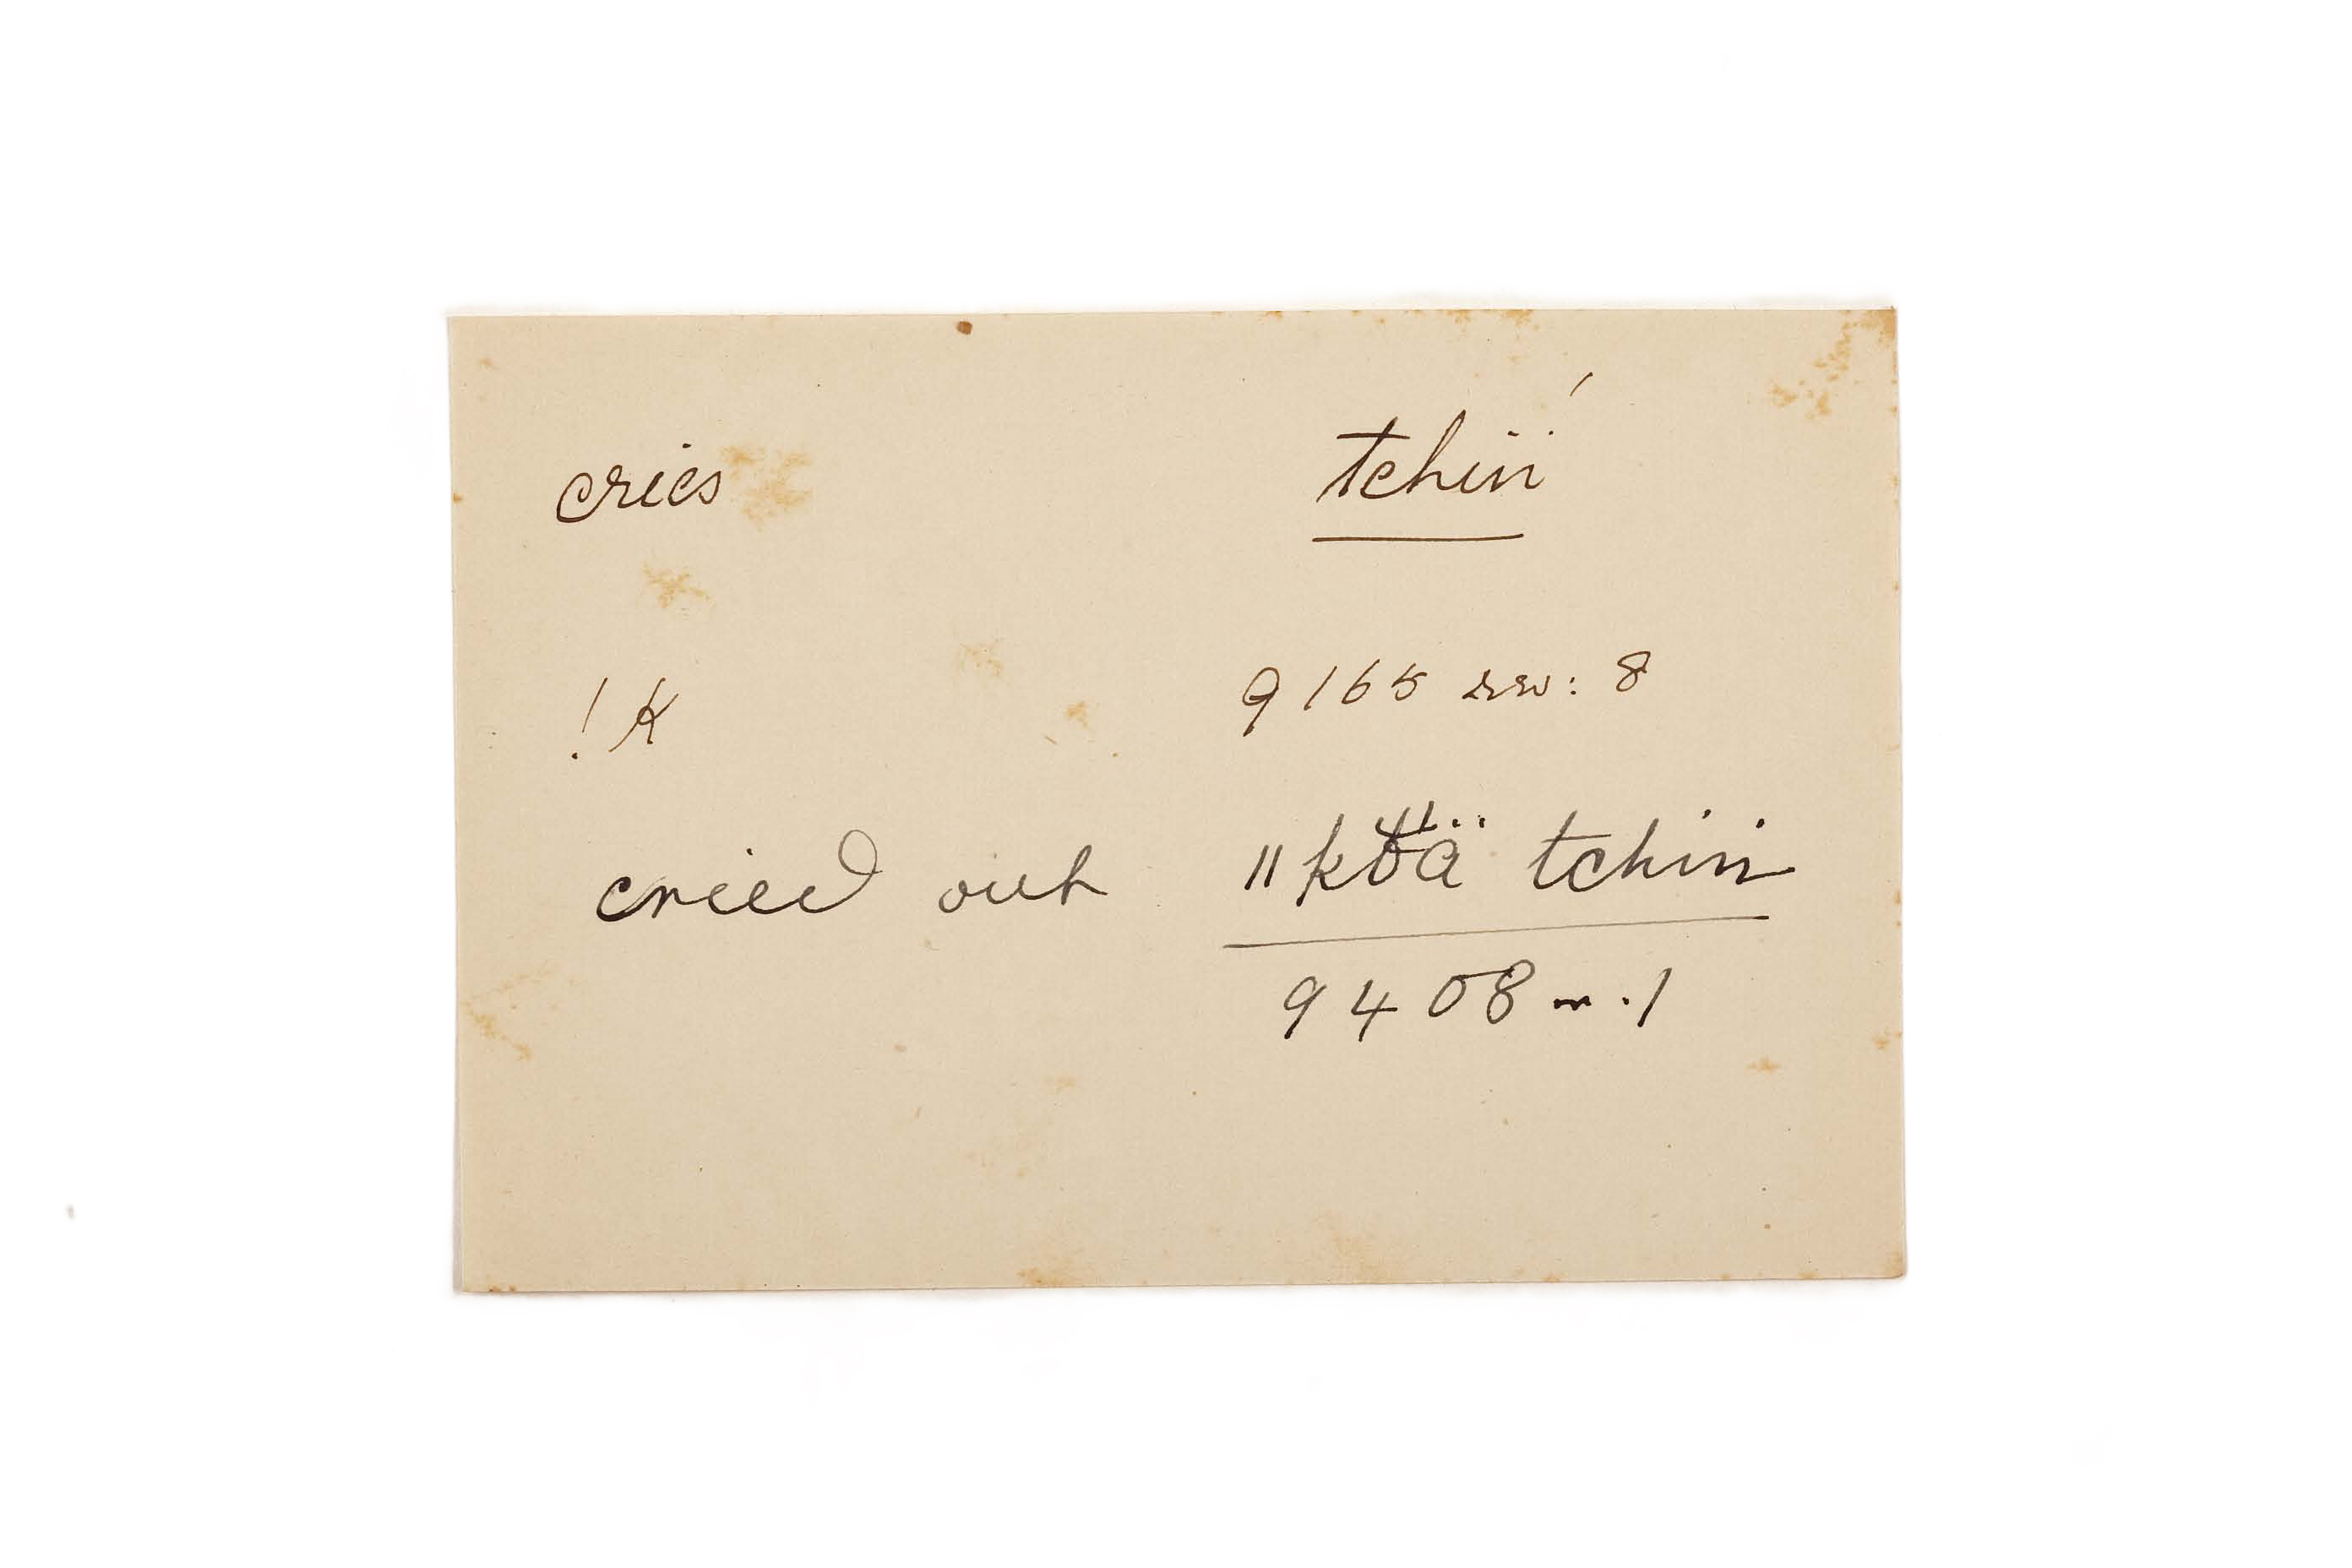 cries tchiń
! K 9165 rev: 8
cried out tchin
9408 .1